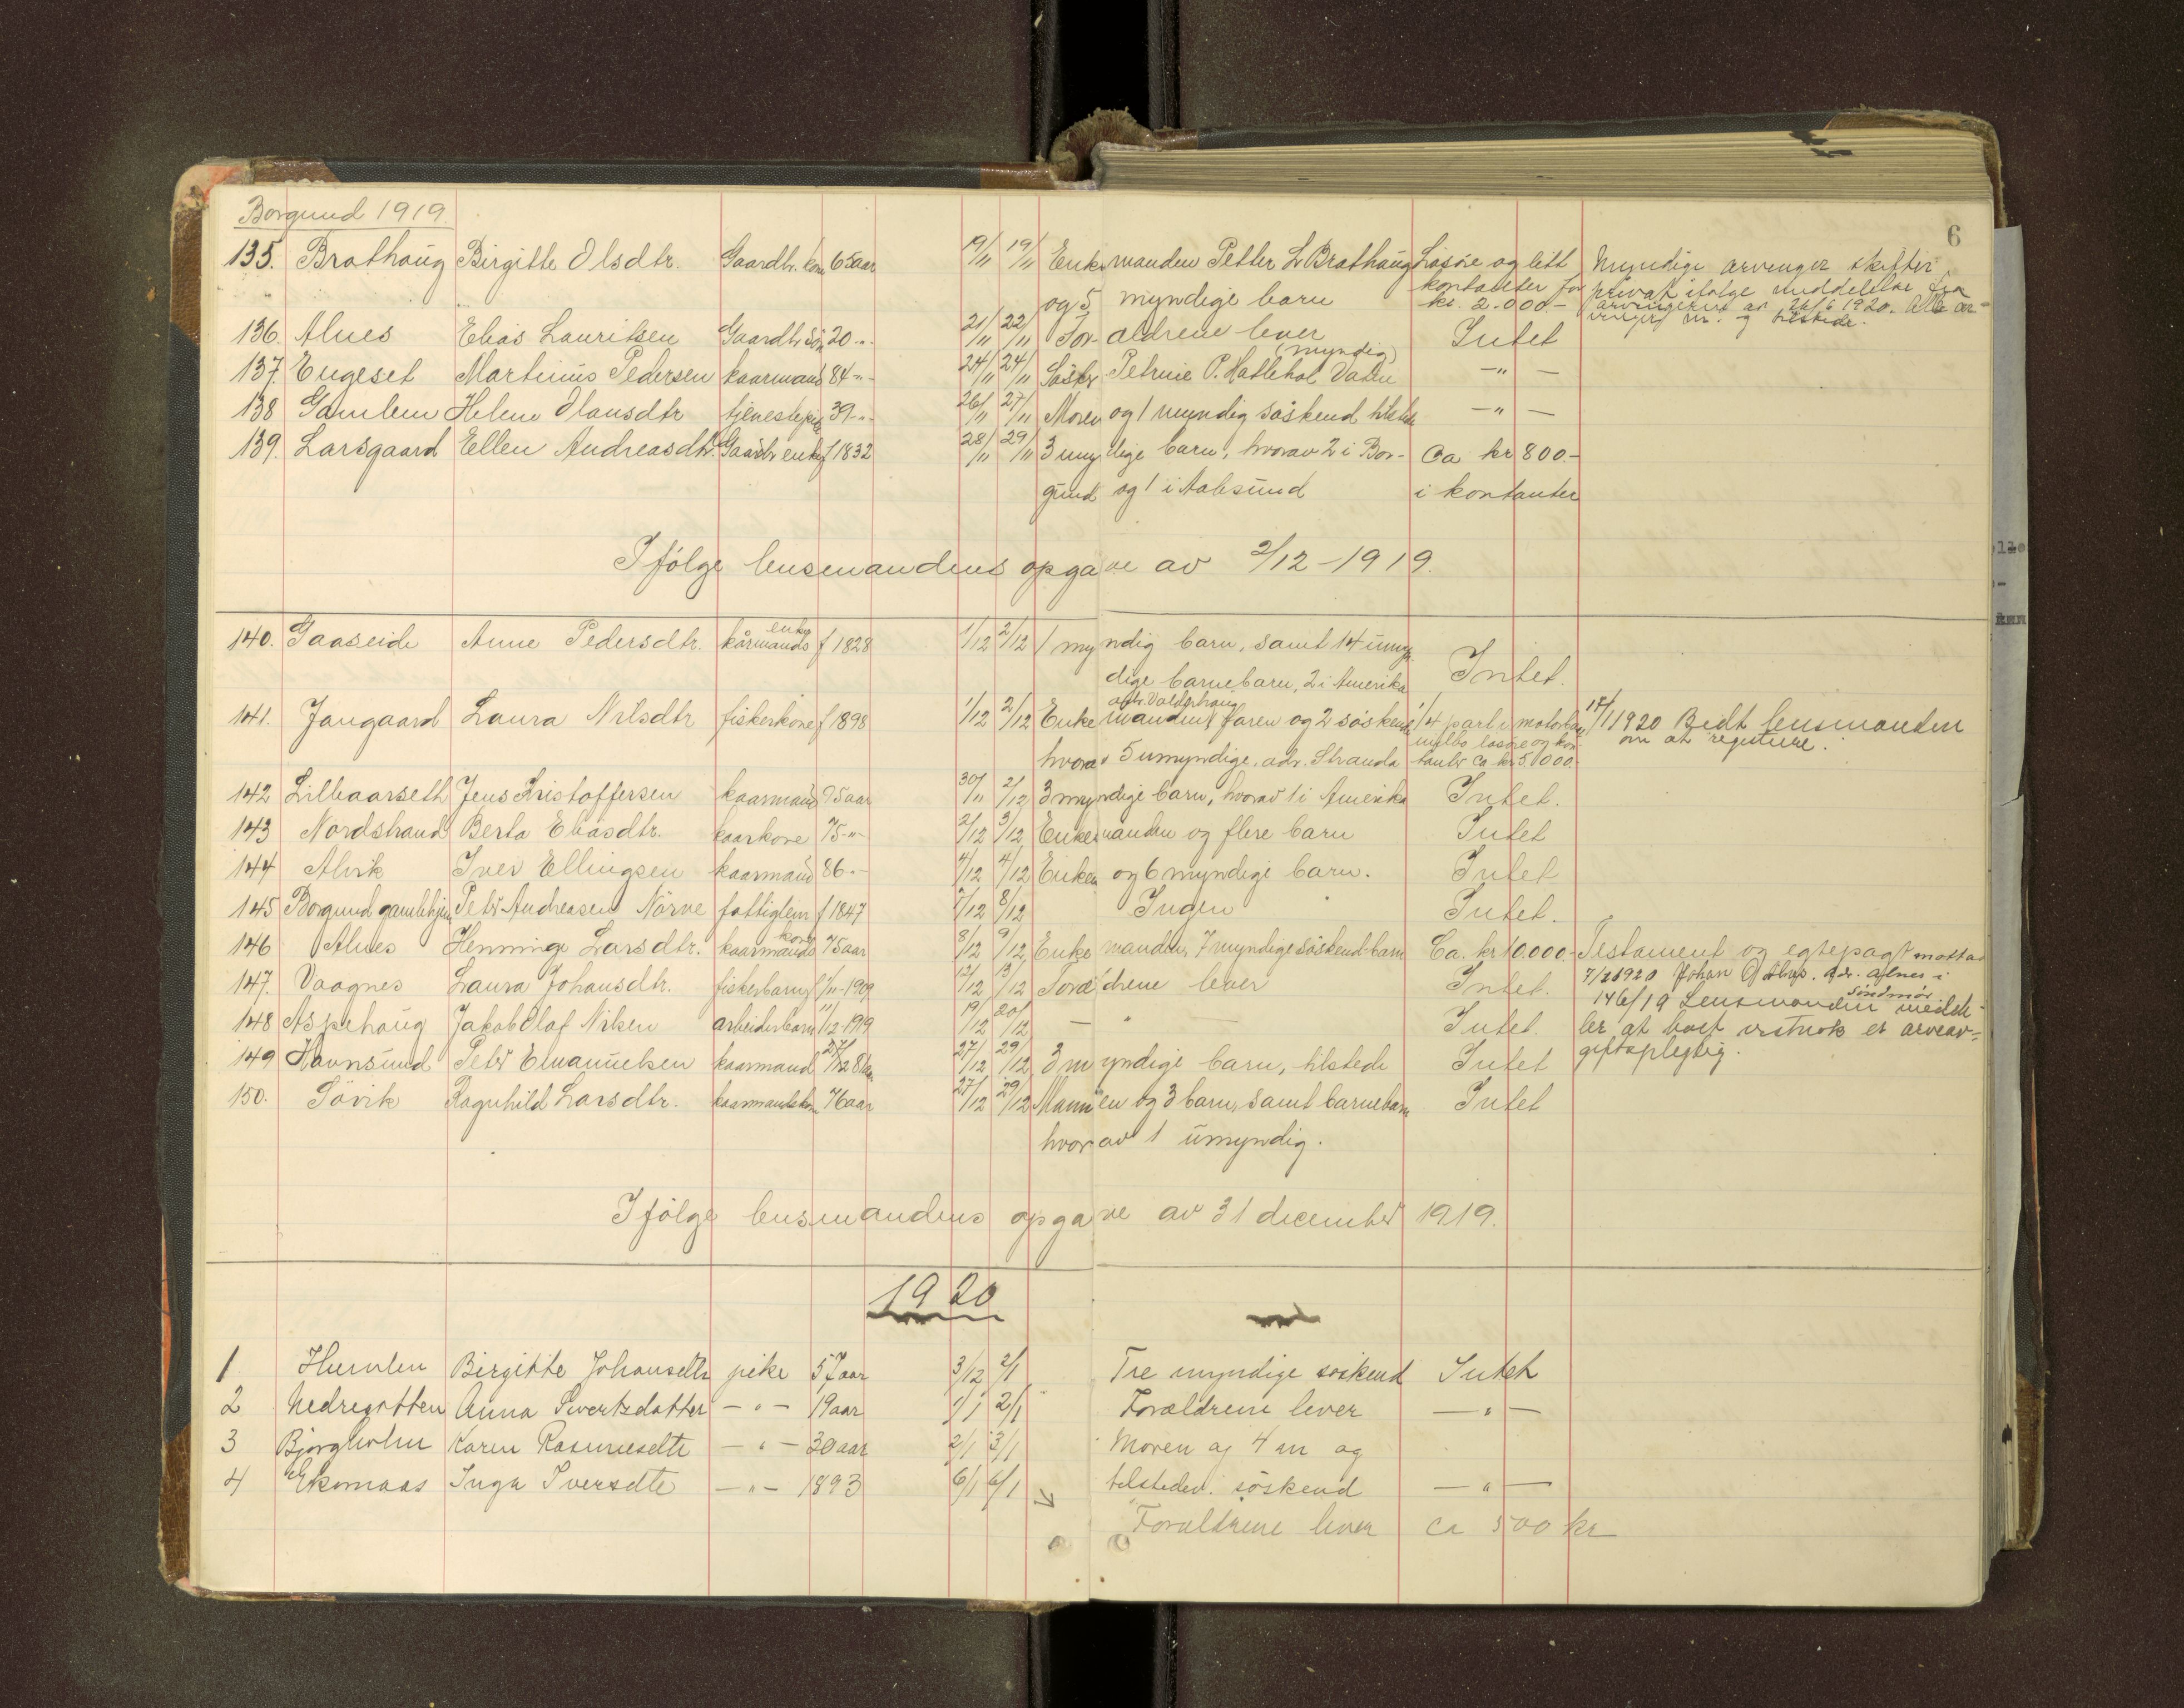 Borgund 1919.
6
135. Brathaug Birgitte Olsdtr. Gaardbr. kone 65 aar 19/11 19/11 Enkemanden Petter L. Brathaug Løsøre og litt Myndige arvinger skifter
kontanter for privat ifølge meddelelse fra
og 5 myndige barn kr. 2.000.- arvingerne av 26/6 1920. Alle ar-
vinger m. og tilstede.
136. Alnes Elias Lauritsen Gaardbr. søn 20 -"- 21/11 22/11 Forældrene lever Intet
(myndig)
137. Engeset Martinus Pedersen kaarmand 84 -"- 24/11 24/11 Søster Petrine P. Hatlehol Vatn -"-
138 Gamlem Helene Olausdtr tjenestepike 39 -"- 26/11 27/11 Moren og 1 myndig søskend tilstede -"-
139. Larsgaard Ellen Andreasdtr. Gaardbr enke f 1832 28/11 29/11 3 myndige barn, hvorav 2 i Bor- Ca kr 800.-
gund og 1 i Aalesund i kontanter
Ifölge lensmandens opgave av 2/12 - 1919.
enke
140. Gaaseide Anne Pedersdtr. kårmands f 1828 1/12 2/12 1 myndig barn, samt 14 umyn-
dige barnebarn, 2 i Amerika Intet.
adr. Valderhaug
141. Jangaard Laura Nilsdtr fiskerkone f 1898 1/12 2/12 Enkemanden, faren og 2 søskende 1/4 part i motorbaat 17/1 1920 Bedt lensmanden
indbo løsøre og kon- om at registrere.
hvorav 5 umyndige. adr. Stranda tanter ca kr 5.000.-
142 Lillaarseth Jens Kristoffersen kaarmand 75 aar 30/11 2/12 3 myndige barn, hvorav 1 i Amerika Intet.
143 Nordstrand Berta Eliasdtr. kaarkone 75 -"- 2/12 3/12 Enkemanden og flere barn Intet
144 Alvik Iver Ellingsen kaarmand 86 -"- 4/12 4/12 Enken og 6 myndige barn. Intet
145 Borgund gamlehjem Peter Andreasen Nörve fattiglem f 1847 7/12 8/12 Ingen Intet.
kone
146 Alnes Henninge Larsdtr. kaarmands 75 aar 8/12 9/12 Enkemanden, 7 myndige søskend-barn Ca. kr 10.000.- Testament og egtepagt mottat
147. Vaagnes Laura Johansdtr. fiskerbarn f 1/11-1909 12/12 13/12 Forældrene lever Intet. 7/2 1920 Johan adr. Alnes i
Søndmør
148 Aspehaug Jakob Olaf Nilsen arbeiderbarn 11/12-1919 19/12 20/12 - " - Intet. 146/19 Lensmanden medde-
ler at boet vistnok er arveav-
149 Havnsund Peter Emanuelsen kaarmand 27/12 81 aar 27/12 29/12 3 myndige barn, tilstede Intet giftspligtig.
150. Sövik Ragnhild Larsdtr. kaarmandskone 76 aar 27/12 29/12 Mannen og 3 barn, samt barnebarn Intet
hvorav 1 umyndig.
Ifölge lensmandens opgave av 31 december 1919.
1920
1 Humlen Birgitte Johansdtr pike 57 aar 3/12 2/1 Tre myndige søskend Intet
2 Nedregotten Anna Sivertsdatter -"- 19 aar 1/1 2/1 Forældrene lever -"-
3 Bjørgholm Karen Rasmusdtr -"- 30 aar 2/1 3/1 Moren og 4 m og
4 Ekornaas Inga Iversdtr -"- 1893 6/1 6/1 tilstedev. søskend -"-
Forældrene lever ca 500 kr